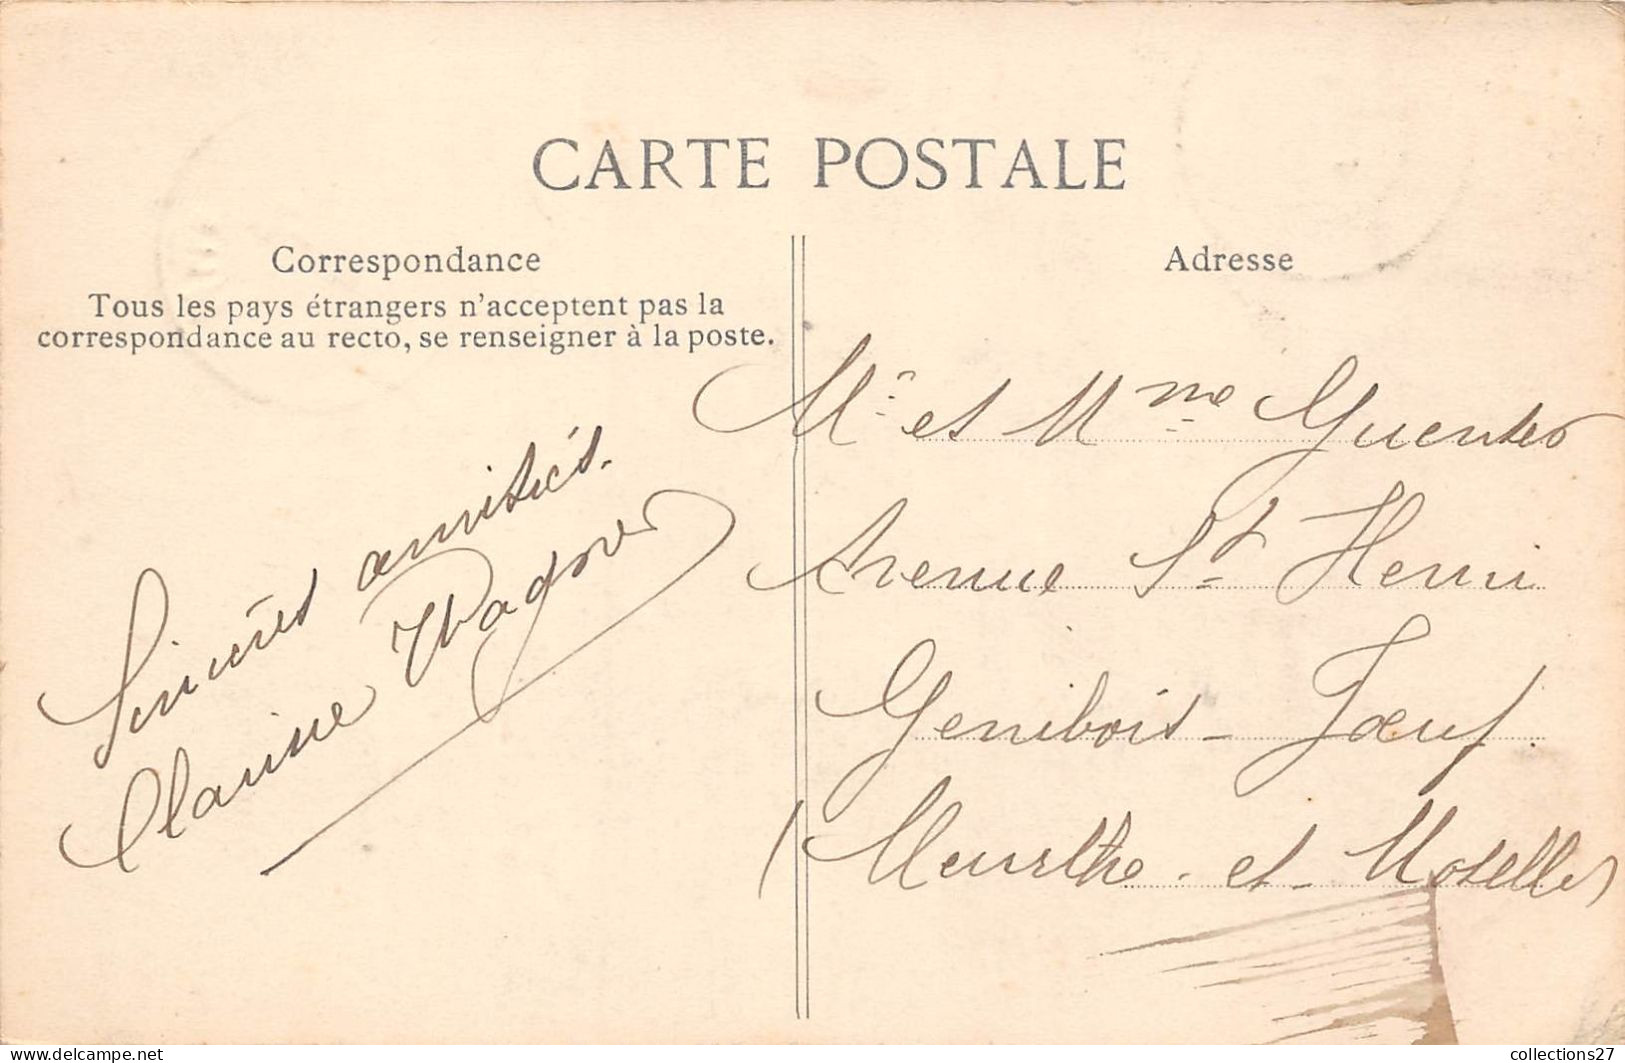 CARTE POSTALE
Correspondance
Tous les pays étrangers n'acceptent pas la
correspondance au recto, se renseigner à la poste.
Sincères amitiés.
Wagner
Adresse
Mr et Mme Guenter
Avenue St Henri
Genibois - Jœuf.
(Meurthe-et-Moselle)
collections27